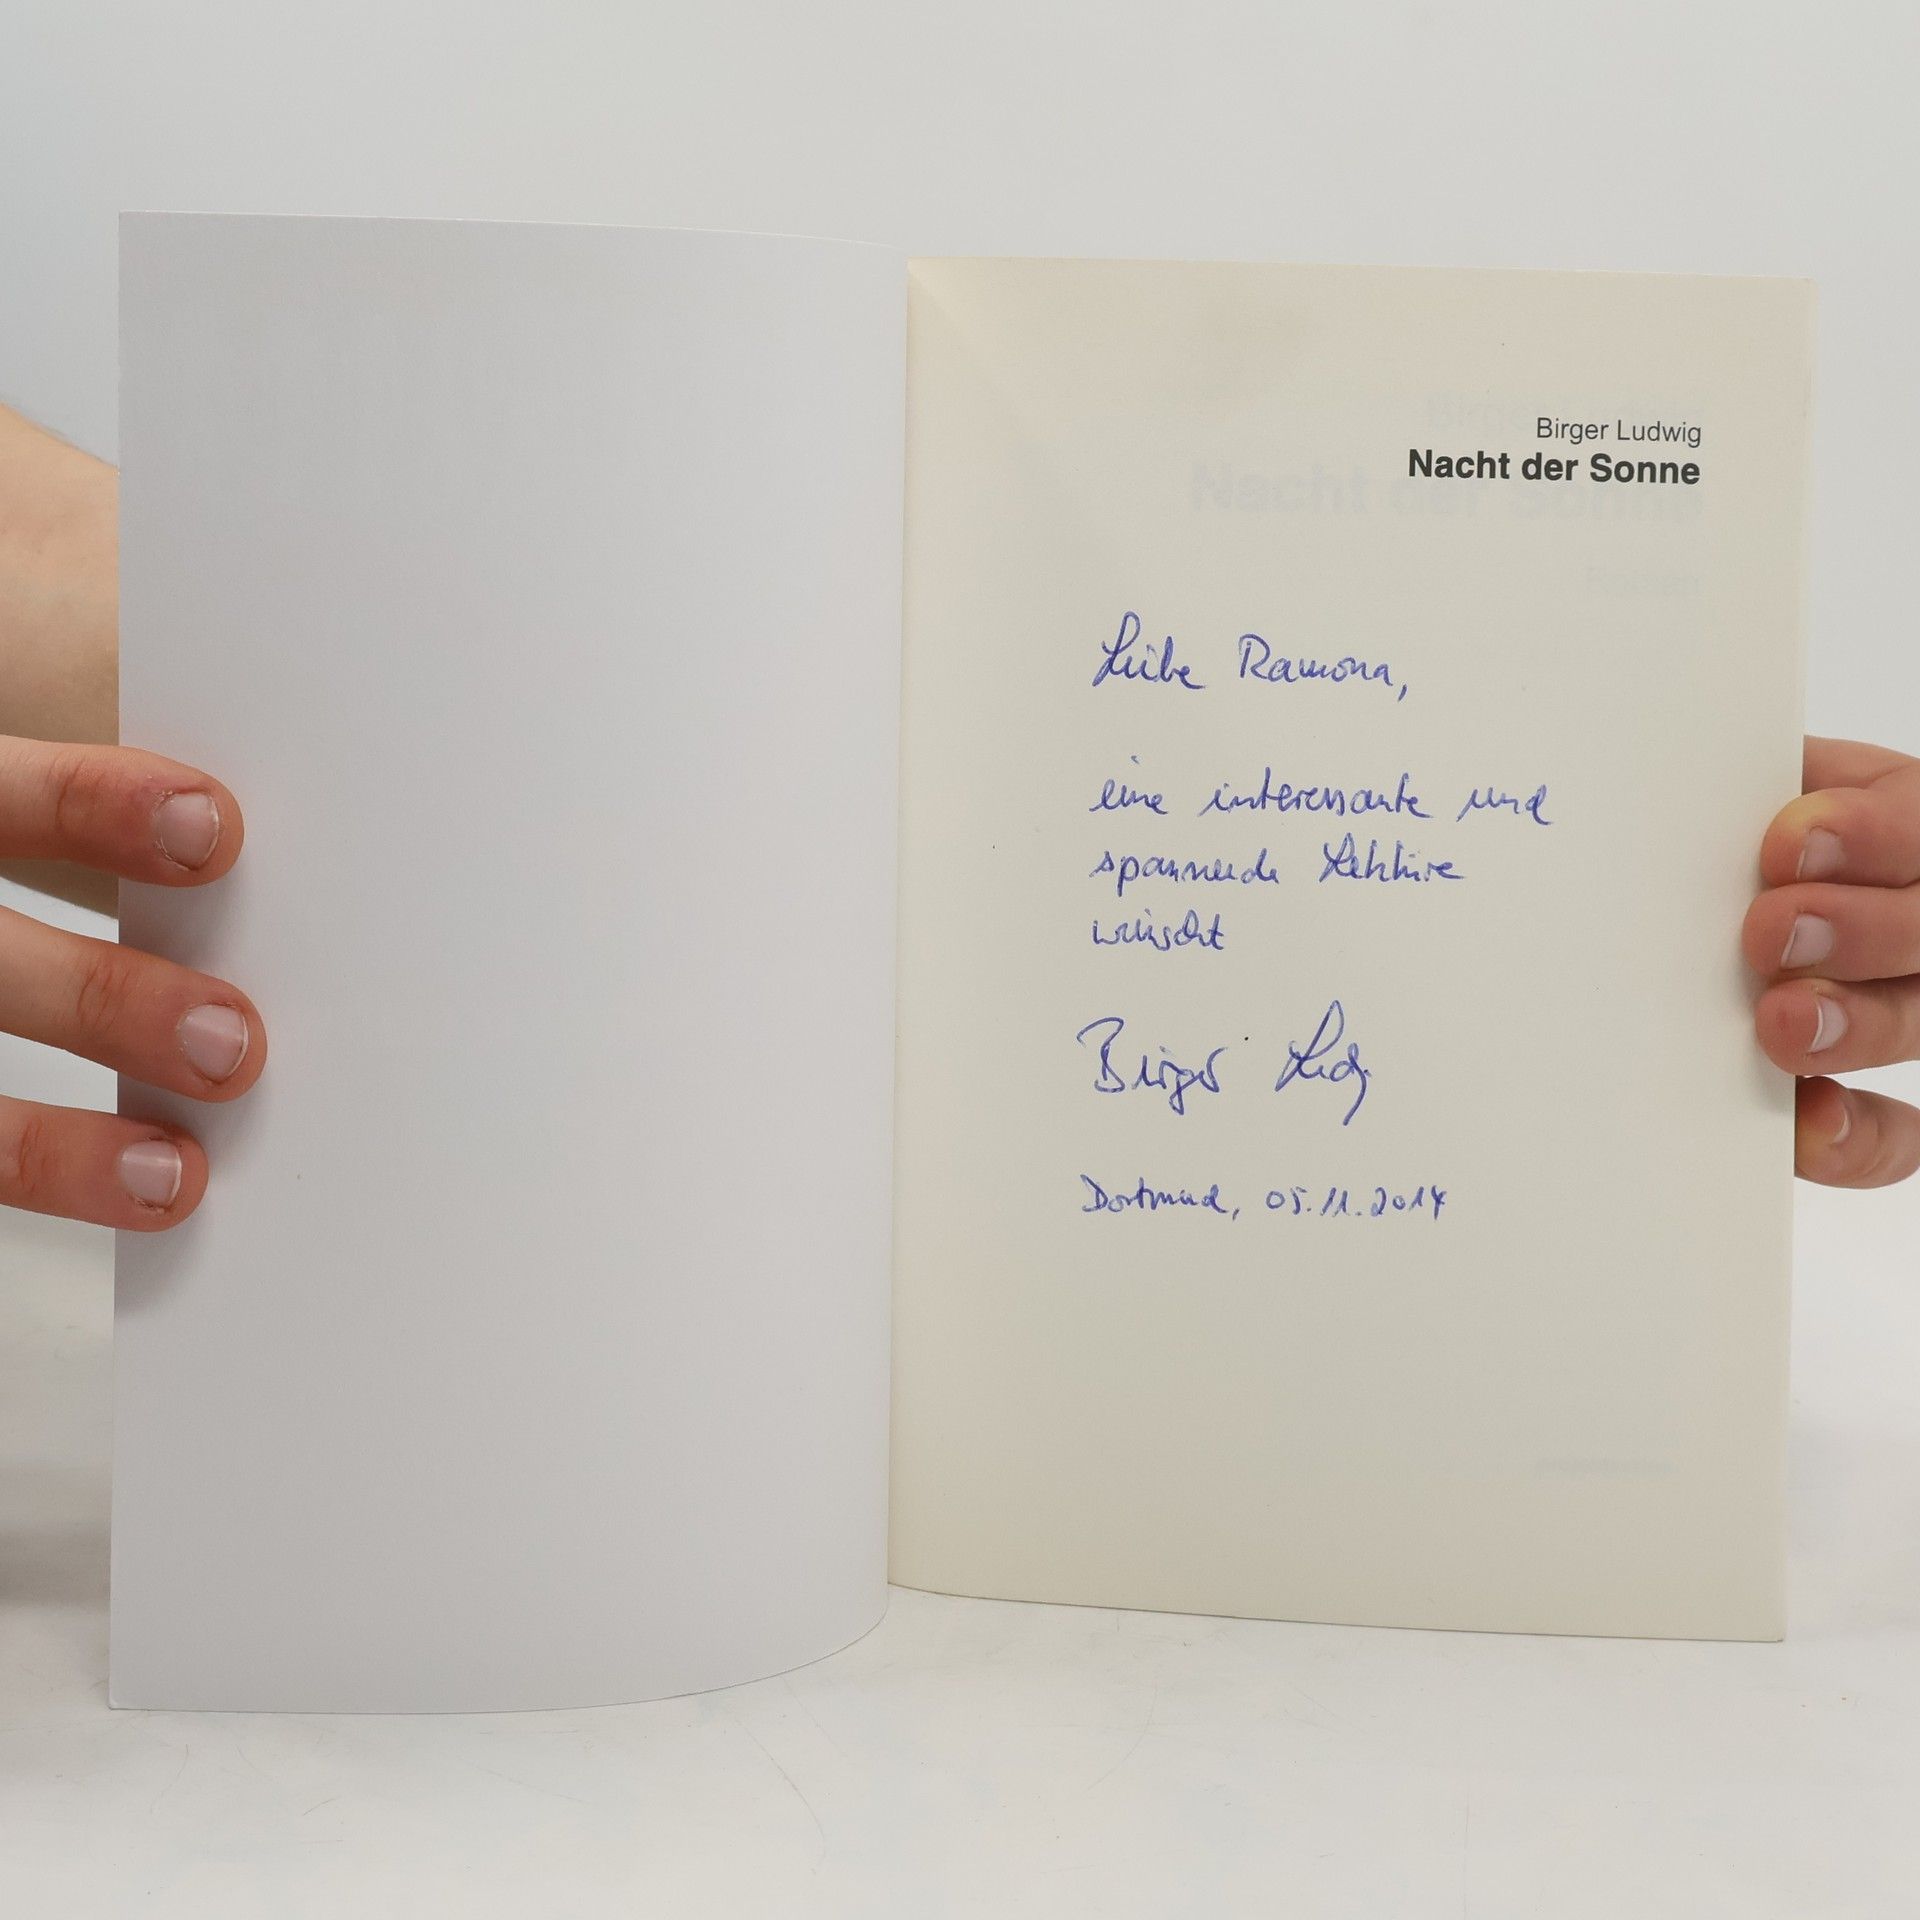 Birger Ludwig
Nacht der Sonne
Liebe Ramona,
eine interessante und
spannende Lektüre
wünscht
Birger
Dortmund, 05.11.2014